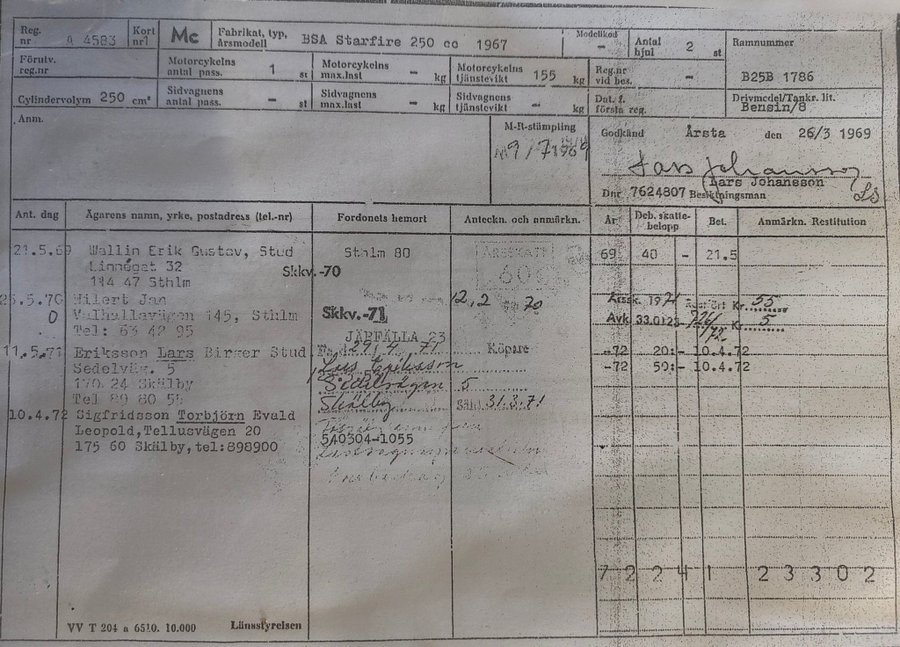 Reg. nr 4583 Kort nr1 Mc Fabrikat, typ, årsmodell BSA Starfire 250 cc 1967 Modellkod - Antal hjul 2 st Ramnummer
Förutv. reg.nr Motorcykelns antal pass. 1 st Motorcykelns max.last - kg Motorcykelns tjänstevikt 155 kg Reg.nr vid bes. - B25B 1786
Cylindervolym 250 cm³ Sidvagnens antal pass. - st Sidvagnens max.last - kg Sidvagnens tjänstevikt - kg Dat. f. första reg. - Drivmedel/Tankr. lit. Bensin/8
Anm. M-R-stämpling Godkänd Årsta den 26/3 1969
9/7 1969
Lars Johansson
Lars Johansson
Dnr 7624807 Besiktningsman
Ant. dag Ägarens namn, yrke, postadress (tel-nr) Fordonets hemort Anteckn. och anmärkn. År Deb. skatte-belopp Bet. Anmärkn. Restitution
21.5.69 Wallin Erik Gustav, Stud Sthlm 80 ÅRSSKATT 69 40 - 21.5
Linnégat 32 Skkv.-70 60
114 47 Sthlm
25.5.70 Hilert Jan 12,2 70 Årssk. 1971 Kr 55
Valhallavägen 145, Sthlm Skkv.-71 Avk 33.0123 Kr 5
Tel: 63 42 95 JÄRFÄLLA 23
11.5.71 Eriksson Lars Birger Stud 29/4 71 Köpare -72 20:- 10.4.72
Sedelväg. 5 Lars Eriksson -72 50:- 10.4.72
170 24 Skälby Sedelvägen 5
Tel 89 80 55 Skälby 31.3.71
10.4.72 Sigfridsson Torbjörn Evald
Leopold, Tellusvägen 20 540304-1055
175 60 Skälby, tel:898900
7 2 2 4 1 2 3 3 0 2
VV T 204 a 6510. 10.000 Länsstyrelsen